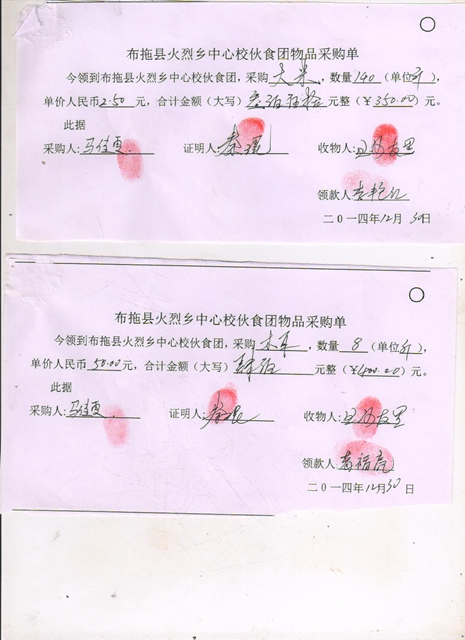 布拖县火烈乡中心校伙食团物品采购单
今领到布拖县火烈乡中心校伙食团，采购 大米，数量 140（单位 斤），
单价人民币 2.50 元，合计金额（大写）叁佰伍拾 元整（￥350.00）元。
此据
采购人: 马佳更 证明人: 秦强 收物人:
领款人 李艳红
二0一四年12月30日
布拖县火烈乡中心校伙食团物品采购单
今领到布拖县火烈乡中心校伙食团，采购 木耳，数量 8（单位 斤），
单价人民币 50.00 元，合计金额（大写）肆佰 元整（￥400.00）元。
此据
采购人: 马佳更 证明人: 秦强 收物人:
领款人
二0一四年12月30日